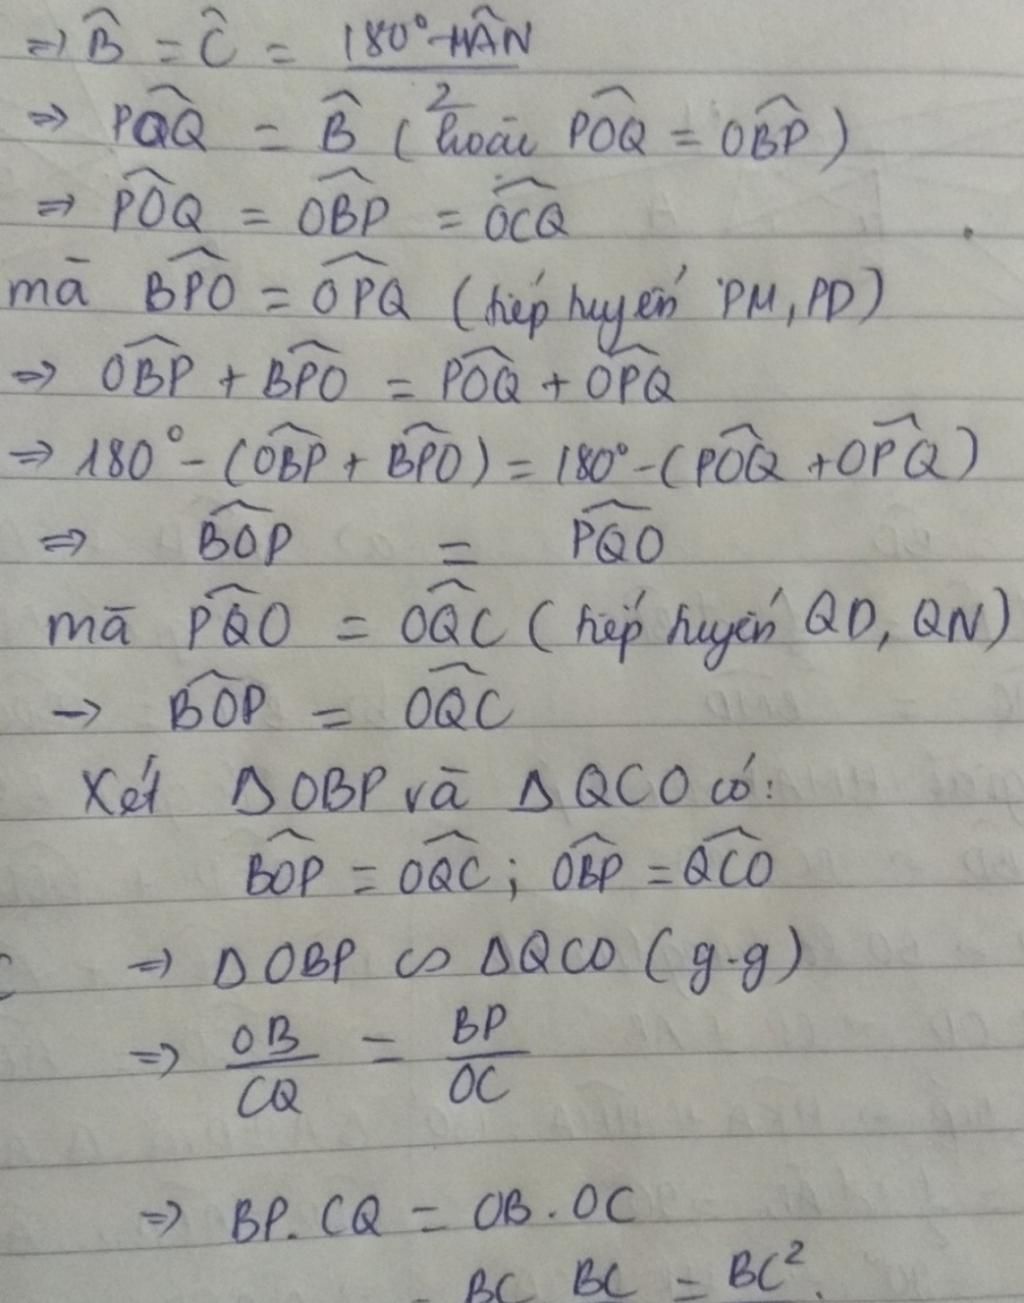 ⇒ B̂ = Ĉ = (180° - MÂN)/2
⇒ PÔQ = B̂ (hoặc PÔQ = OB̂P)
⇒ PÔQ = OB̂P = OĈQ
mà BP̂O = OP̂Q (tiếp tuyến PM, PD)
⇒ OB̂P + BP̂O = PÔQ + OP̂Q
⇒ 180° - (OB̂P + BP̂O) = 180° - (PÔQ + OP̂Q)
⇒ BÔP = PQ̂O
mà PQ̂O = OQ̂C (tiếp tuyến QD, QN)
→ BÔP = OQ̂C
Xét Δ OBP và Δ QCO có:
BÔP = OQ̂C ; OB̂P = QĈO
⇒ Δ OBP ∽ Δ QCO (g.g)
⇒ OB/CQ = BP/OC
⇒ BP. CQ = OB . OC
BC BC = BC².